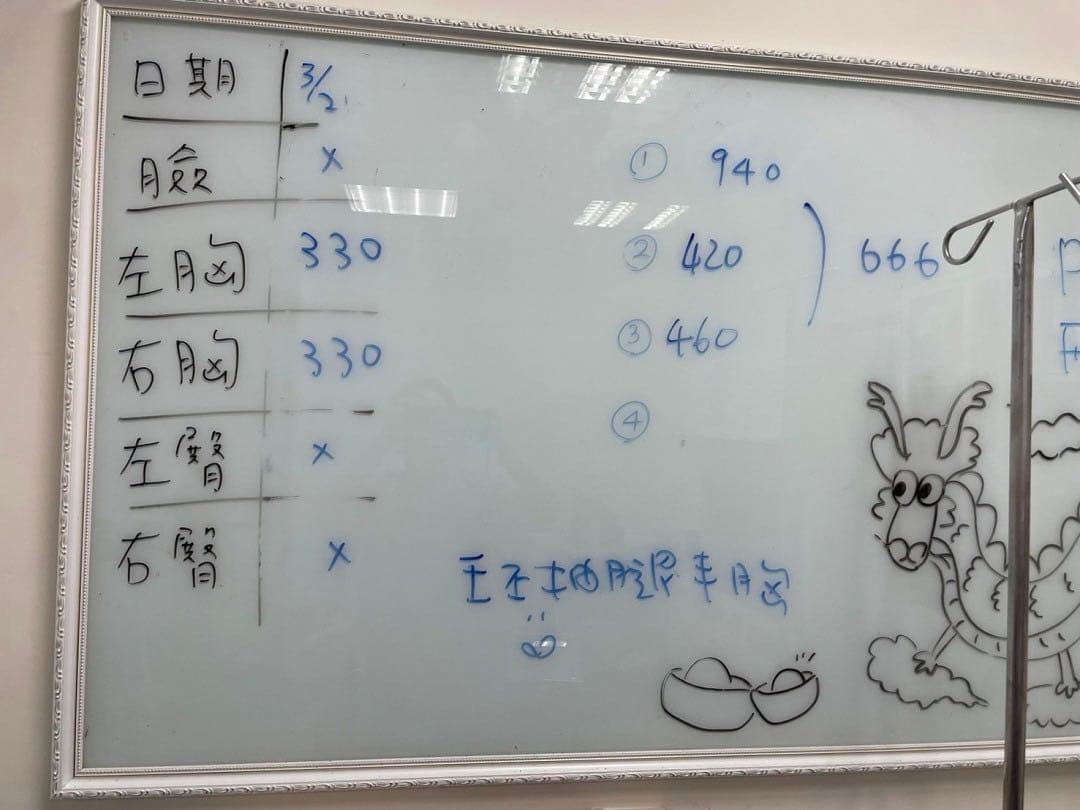 日期 3/2
臉 x
左胸 330
右胸 330
左臀 x
右臀 x
① 940
② 420
③ 460
④
666
抽腿 胸